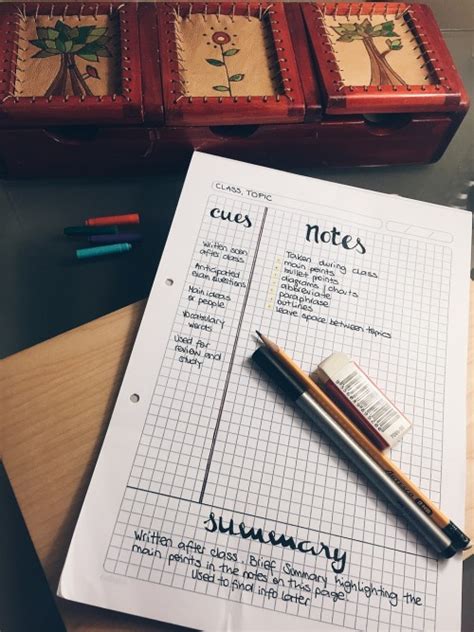 CLASS, TOPIC
cues
Written soon
after class
Anticipated
exam questions
Main ideas
or people
Vocabulary
words
Used for
review and
study
notes
Taken during class
main points
bullet points
diagrams / charts
abbreviate
paraphrase
outlines
leave space between topics
summary
Written after class. Brief Summary highlighting the
main points in the notes on this page.
Used to find info later